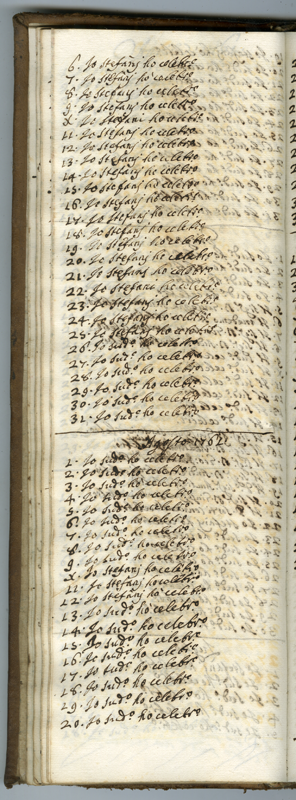 6. Io Stefanj ho celebrº
7. Io Stefanj ho celebrº
8. Io Stefanj ho celebrº
9. Io Stefanj ho celebrº
X. Io Stefani ho celebrº
11. Io Stefanj ho celebrº
12. Io Stefanj ho celebrº
13. Io Stefanj ho celebrº
14. Io Stefanj ho celebrº
15. Io Stefanj ho celebrº
16. Io Stefanj ho celebrº
17. Io Stefanj ho celebrº
18. Io Stefanj ho celebrº
19. Io Stefanj ho celebrº
20. Io Stefanj ho celebrº
21. Io Stefanj ho celebrº
22. Io Stefani ho celebrº
23. Io Stefanj ho celebrº
24. Io Stefanj ho celebrº
25. Io Stefanj ho celebrº
26. Io sudº ho celebrº
27. Io sudº ho celebrº
28. Io sudº ho celebrº
29. Io sudº ho celebrº
30. Io sudº ho celebrº
31. Io sudº ho celebrº
Agosto 1762
1. Io sudº ho celebrº
2. Io sudº ho celebrº
3. Io sudº ho celebrº
4. Io sudº ho celebrº
5. Io sudº ho celebrº
6. Io sudº ho celebrº
7. Io sudº ho celebrº
8. Io sudº ho celebrº
9. Io sudº ho celebrº
X. Io Stefanj ho celebrº
11. Io Stefanj ho celebrº
12. Io Stefanj ho celebrº
13. Io sudº ho celebrº
14. Io sudº ho celebrº
15. Io sudº ho celebrº
16. Io sudº ho celebrº
17. Io sudº ho celebrº
18. Io sudº ho celebrº
19. Io sudº ho celebrº
20. Io sudº ho celebrº